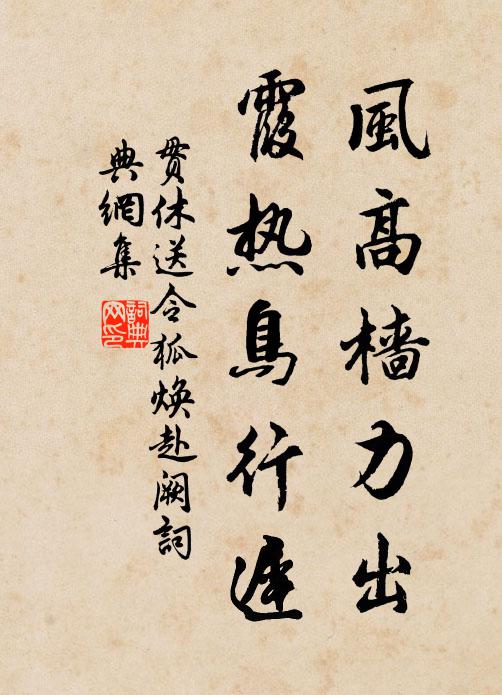 風高檣力出
霞热鳥行遲
貫休送令狐焕赴阙詞
典網集
詞典
网印